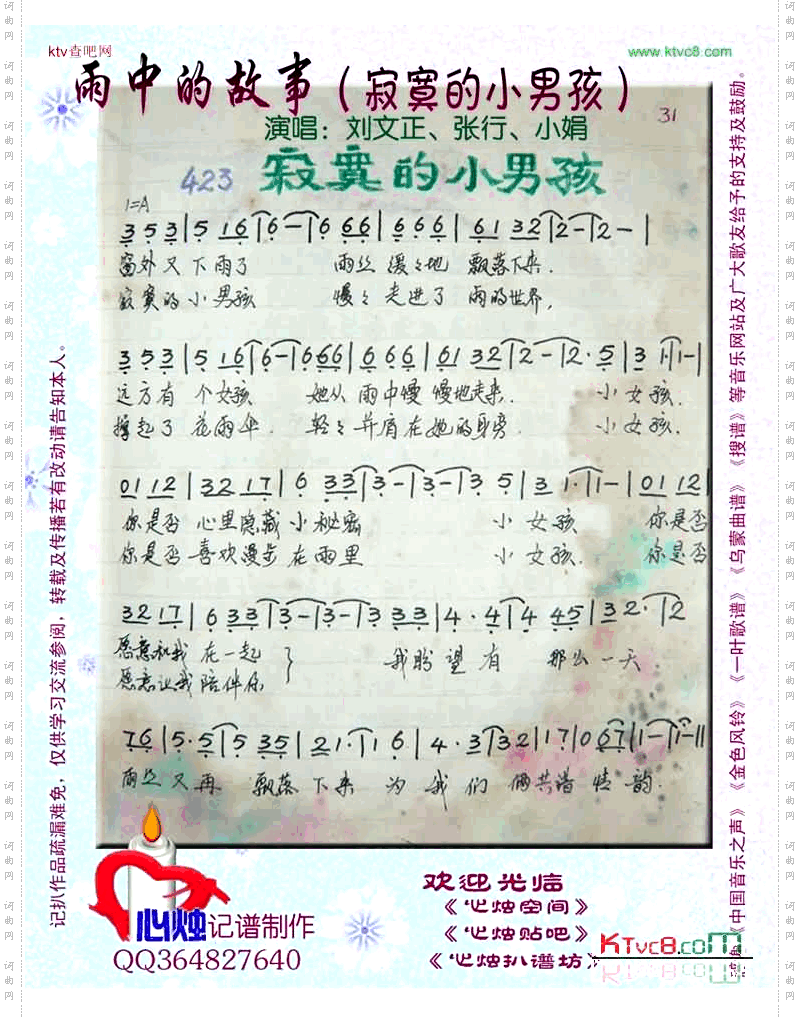 ktv查吧网
www.ktvc8.com
雨中的故事（寂寞的小男孩）
31
演唱：刘文正、张行、小娟
423 寂寞的小男孩
1=A
3 5 3 | 5 1 6 | 6 — | 6 6 6 | 6 6 6 | 6 1 3 2 | 2 — | 2 — |
窗外又下雨了 雨丝缓々地 飘落下来.
寂寞的小男孩 慢々走进了 雨的世界,
3 5 3 | 5 1 6 | 6 — | 6 6 6 6 | 6 6 6 | 6 1 3 2 | 2 — | 2 · 5 | 3 1 · | 1 — |
远方有 个女孩 她从 雨中慢 慢地走来. 小女孩.
撑起了 花雨伞. 轻々并肩在她的身旁 小女孩.
0 1 1 2 | 3 2 1 7 | 6 3 3 | 3 — | 3 — | 3 5 | 3 1 · | 1 — | 0 1 1 2 |
你是否 心里隐藏小秘密 小女孩 你是否
你是否 喜欢漫步在雨里 小女孩. 你是否
3 2 1 7 | 6 3 3 | 3 — | 3 — | 3 3 3 | 4 · 4 | 4 4 5 | 3 2 · | 2
愿意和我 在一起 } 我盼望有 那么一天
愿意让我陪伴你
7 6 | 5 · 5 | 5 3 5 | 2 1 · | 1 6 | 4 · 3 | 3 2 | 1 7 | 0 6 7 | 1 — | 1 — ‖
雨丝又再 飘落下来 为我们 俩共谱情韵.
记扒作品疏漏难免，仅供学习交流参阅，转载及传播若有改动请告知本人。
《中国音乐之声》《金色风铃》《一叶歌谱》《乌蒙曲谱》《搜谱》等音乐网站及广大歌友给予的支持及鼓励。
心烛记谱制作
QQ364827640
欢迎光临
《心烛空间》
《心烛贴吧》
《心烛扒谱坊》
KTvc8.com
词曲网